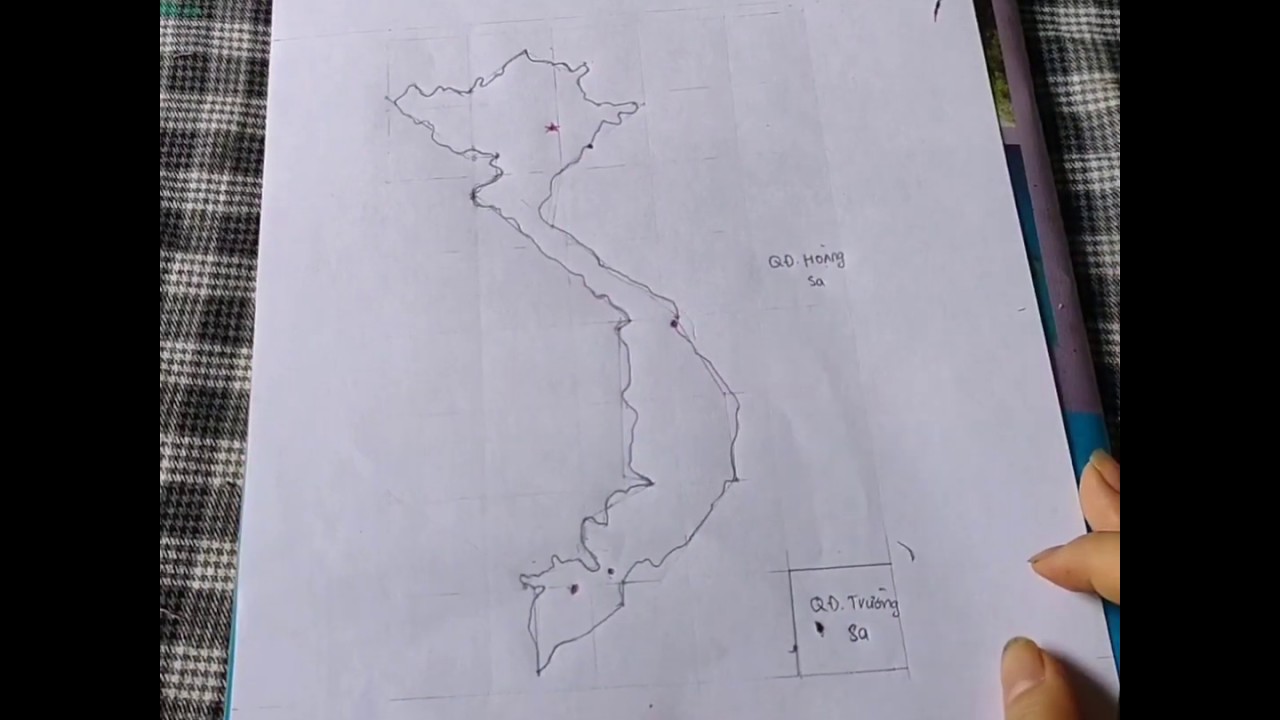 QĐ. Hoàng
Sa
QĐ. Trường
Sa